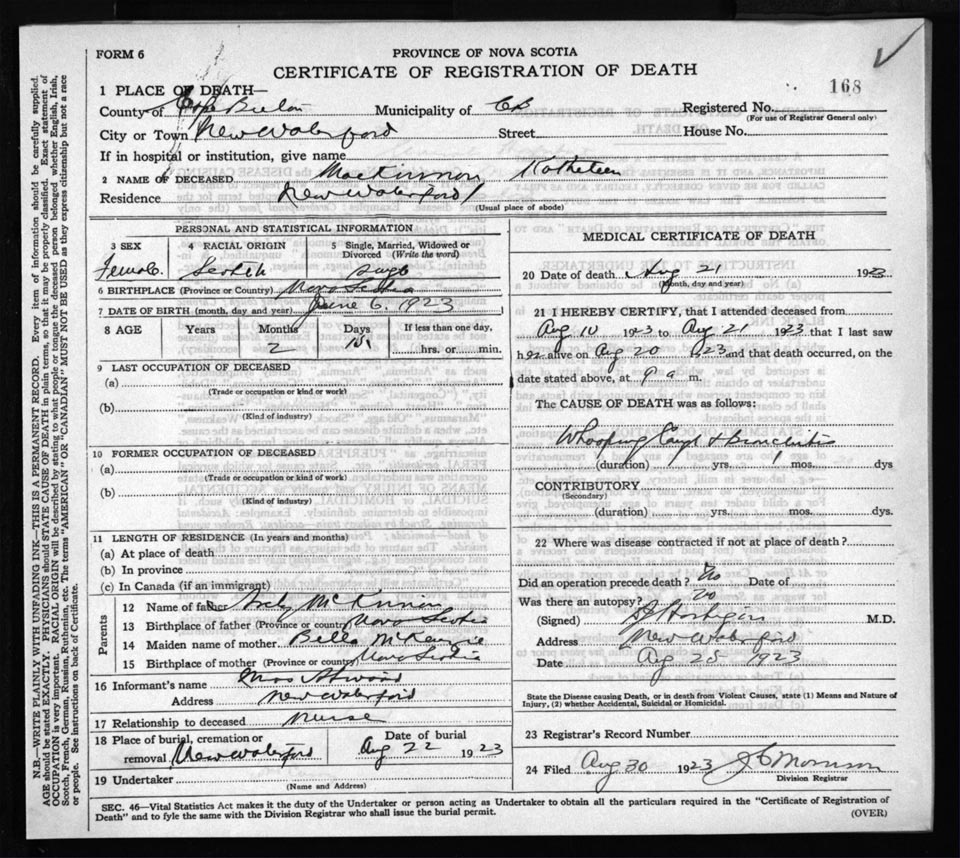 FORM 6
PROVINCE OF NOVA SCOTIA
CERTIFICATE OF REGISTRATION OF DEATH
168
1 PLACE OF DEATH—
County of Cape Breton Municipality of CB Registered No.
(For use of Registrar General only)
City or Town New Waterford Street House No.
If in hospital or institution, give name
2 NAME OF DECEASED MacKinnon, Kathleen
Residence New Waterford
(Usual place of abode)
PERSONAL AND STATISTICAL INFORMATION
3 SEX 4 RACIAL ORIGIN 5 Single, Married, Widowed or Divorced (Write the word)
Female Scotch Single
6 BIRTHPLACE (Province or Country) Nova Scotia
7 DATE OF BIRTH (month, day and year) June 6, 1923
8 AGE Years Months Days If less than one day,
2 15 hrs. or min.
9 LAST OCCUPATION OF DECEASED
(a)
(Trade or occupation or kind or work)
(b)
(Kind of industry)
10 FORMER OCCUPATION OF DECEASED
(a)
(Trade or occupation or kind of work)
(b)
(Kind of Industry)
11 LENGTH OF RESIDENCE (In years and months)
(a) At place of death
(b) In province
(c) In Canada (if an immigrant)
Parents
12 Name of father McKinnon
13 Birthplace of father (Province or country) Nova Scotia
14 Maiden name of mother. Bella McKenzie
15 Birthplace of mother (Province or country) Nova Scotia
16 Informant's name Mrs Atwood
Address New Waterford
17 Relationship to deceased nurse
18 Place of burial, cremation or removal New Waterford Date of burial Aug 22 1923
19 Undertaker
(Name and Address)
MEDICAL CERTIFICATE OF DEATH
20 Date of death Aug 21 1923
(Month, day and year)
21 I HEREBY CERTIFY, that I attended deceased from
Aug 10 1923 to Aug 21 1923 that I last saw
her alive on Aug 20 1923 and that death occurred, on the
date stated above, at 9 a m.
The CAUSE OF DEATH was as follows:
Whooping Cough & Bronchitis
(duration) yrs. 1 mos. dys
CONTRIBUTORY
(Secondary)
(duration) yrs. mos. dys.
22 Where was disease contracted if not at place of death?
Did an operation precede death? No Date of
Was there an autopsy? No
(Signed) M.D.
Address New Waterford
Date Aug 25 1923
State the Disease causing Death, or in death from Violent Causes, state (1) Means and Nature of
Injury, (2) whether Accidental, Suicidal or Homicidal.
23 Registrar's Record Number
24 Filed Aug 30 1923 Morrison
Division Registrar
SEC. 46—Vital Statistics Act makes it the duty of the Undertaker or person acting as Undertaker to obtain all the particulars required in the "Certificate of Registration of
Death" and to fyle the same with the Division Registrar who shall issue the burial permit.
(OVER)
N.B.—WRITE PLAINLY WITH UNFADING INK—THIS IS A PERMANENT RECORD. Every item of information should be carefully supplied.
AGE should be stated EXACTLY. PHYSICIANS should STATE CAUSE OF DEATH in plain terms, so that it may be properly classified. Exact statement of
OCCUPATION is very important. RACIAL ORIGIN will be described by stating to what people or tongue the deceased person belonged whether English, Irish,
Scotch, French, German, Russian, Ruthenian, etc. The terms "AMERICAN" OR "CANADIAN" MUST NOT BE USED as they express citizenship but not a race
or people. See instructions on back of Certificate.